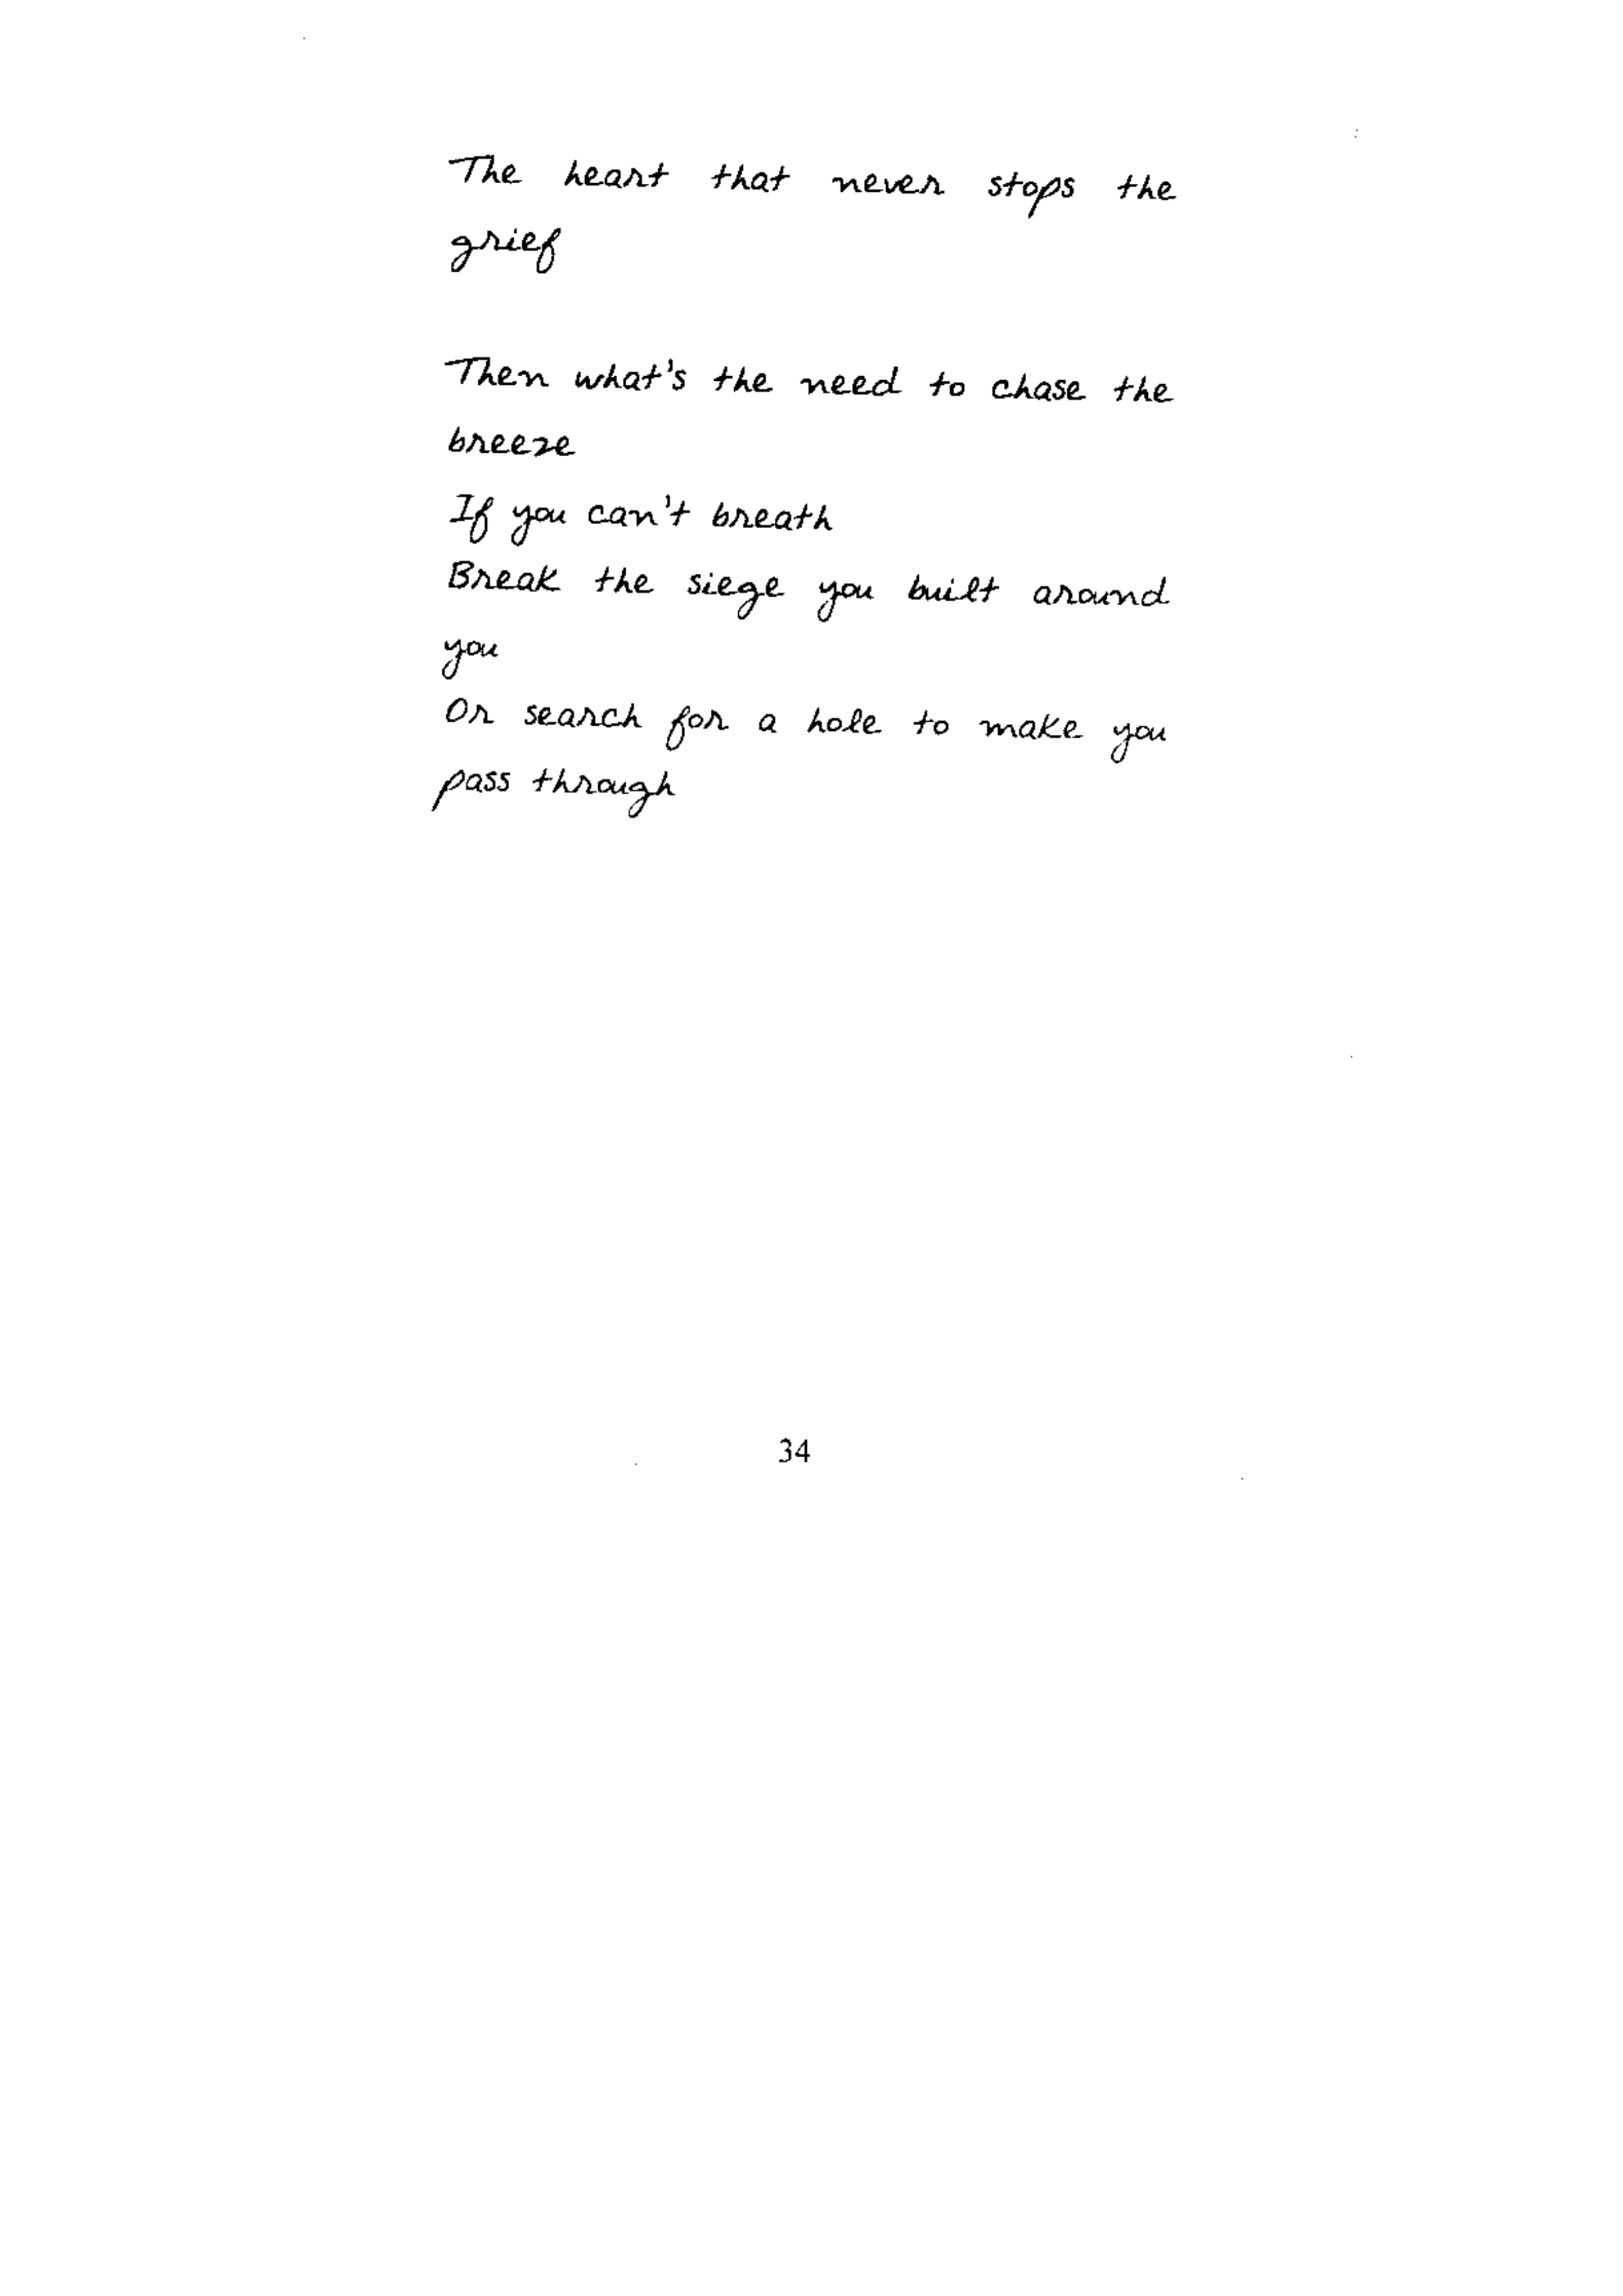 The heart that never stops the
grief
Then what's the need to chase the
breeze
If you can't breath
Break the siege you built around
you
Or search for a hole to make you
pass through
34